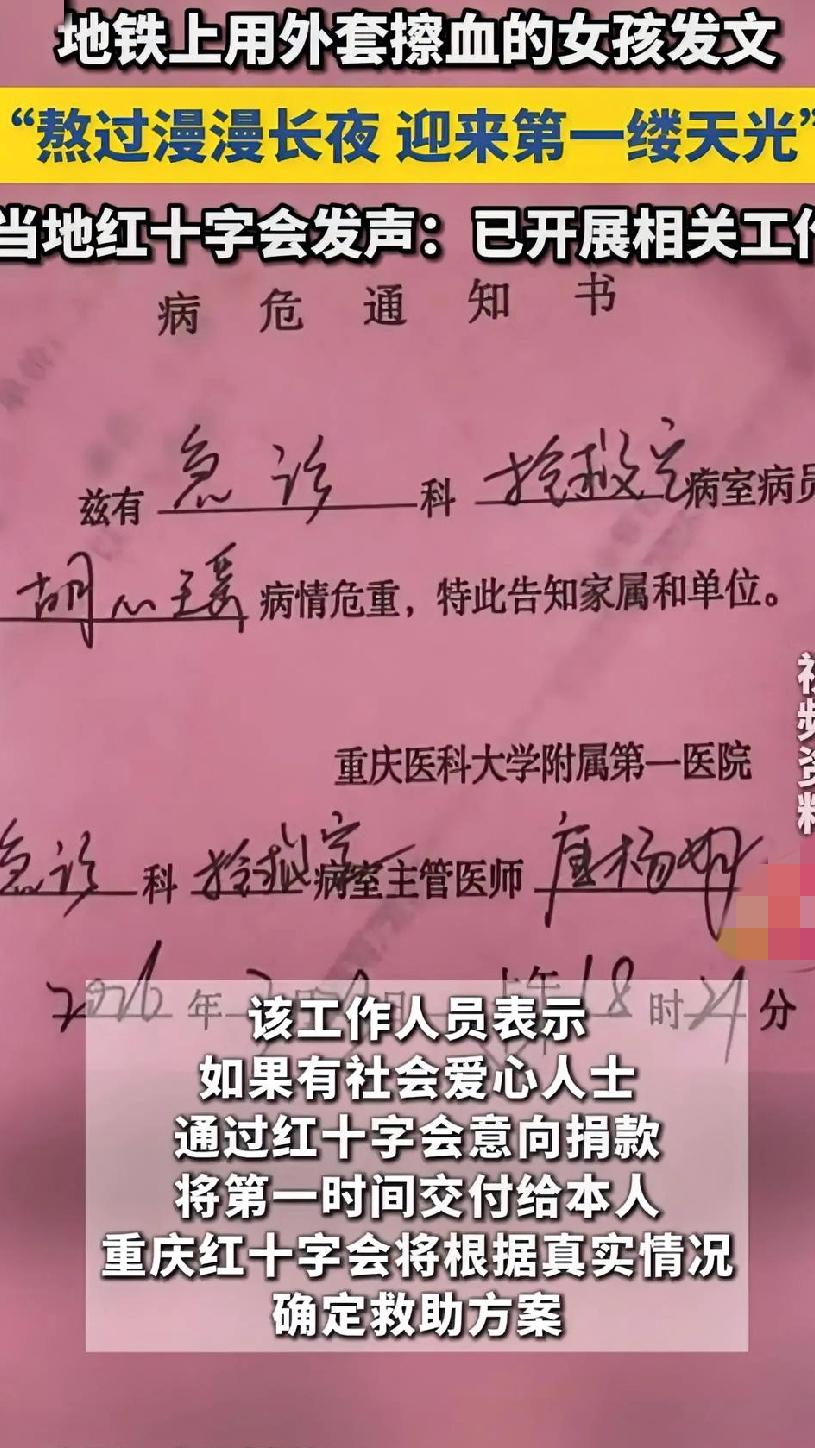 地铁上用外套擦血的女孩发文
“熬过漫漫长夜 迎来第一缕天光”
当地红十字会发声：已开展相关工作
病危通知书
兹有 急诊 科 抢救室 病室病员
胡心瑶 病情危重，特此告知家属和单位。
视频资料
重庆医科大学附属第一医院
急诊 科 抢救室 病室主管医师
2026 年 日 上午 18 时 21 分
该工作人员表示
如果有社会爱心人士
通过红十字会意向捐款
将第一时间交付给本人
重庆红十字会将根据真实情况
确定救助方案